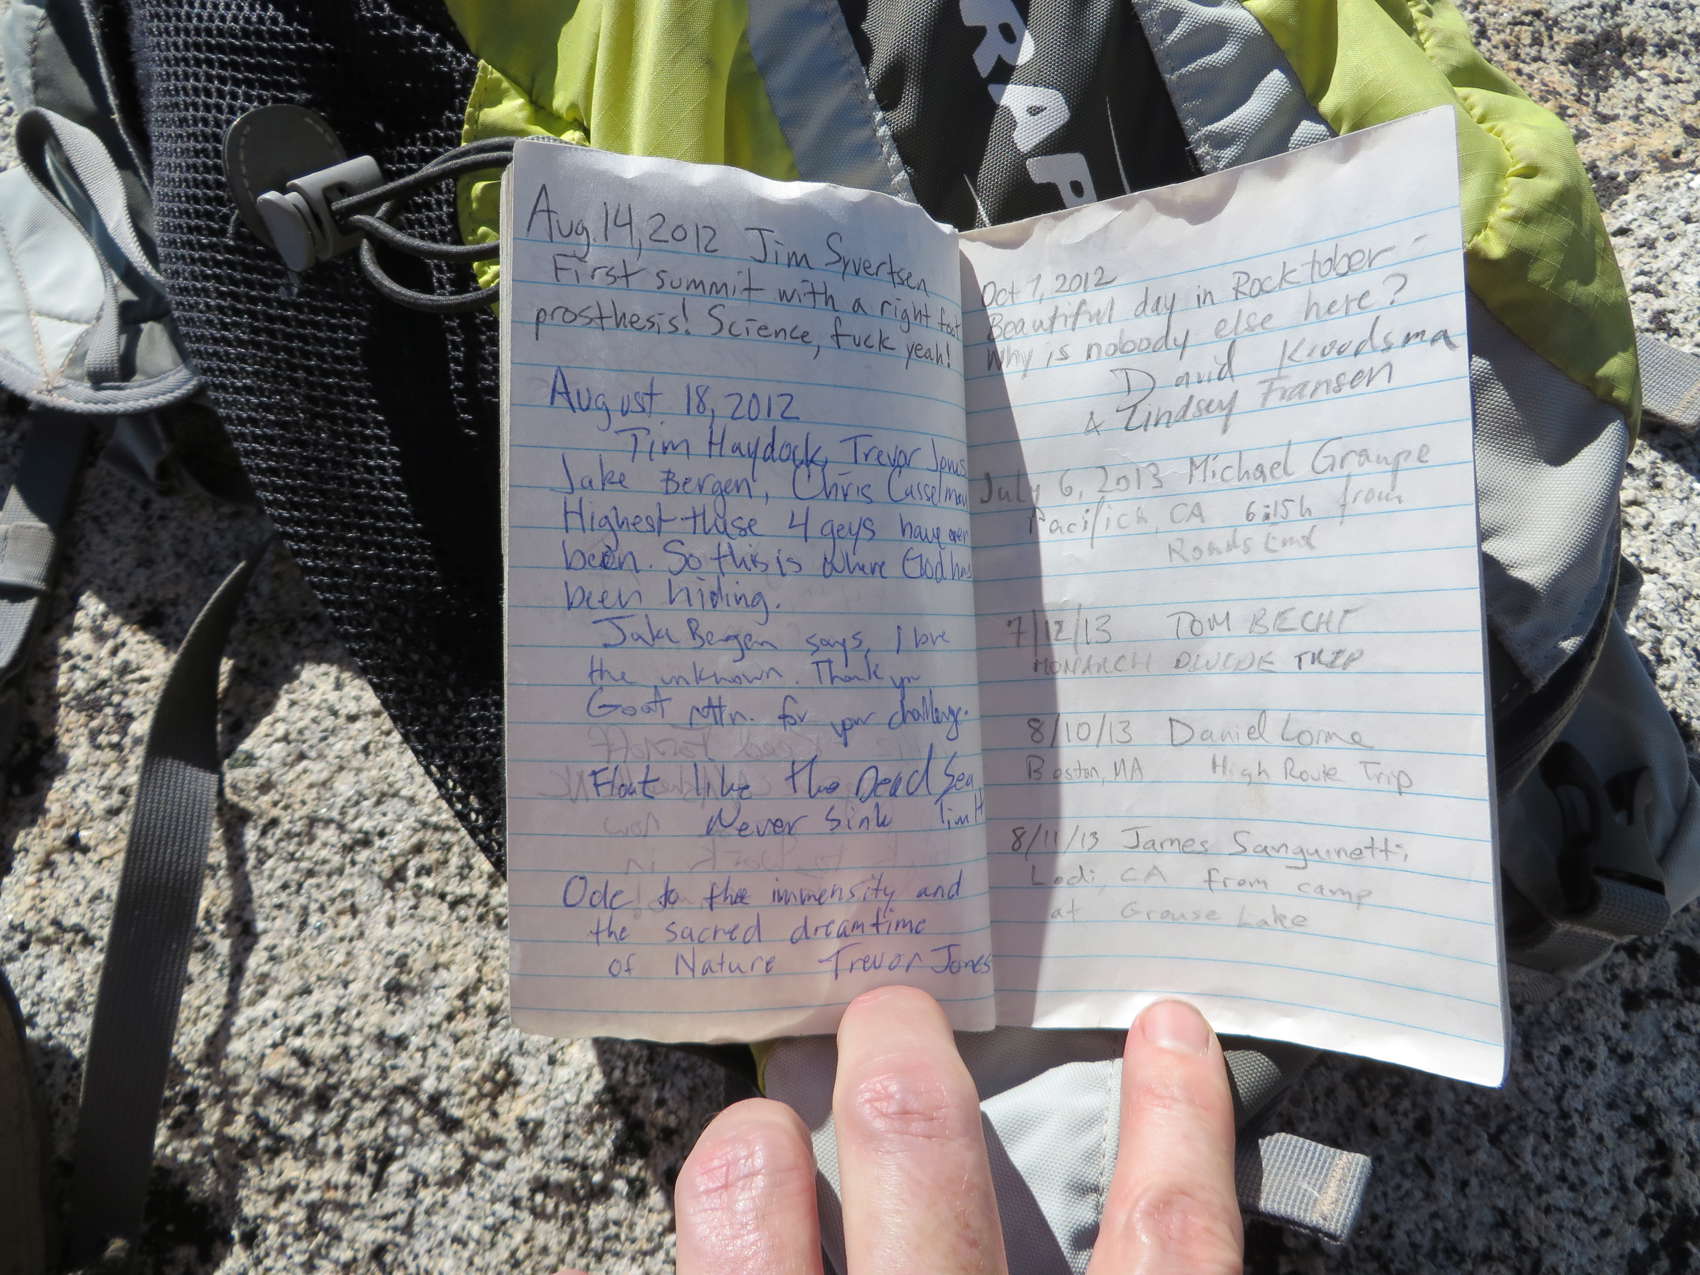 RAP
Aug. 14, 2012 Jim Syvertsen
First summit with a right foot
prosthesis! Science, fuck yeah!
August 18, 2012
Tim Haydock, Trevor Jones
Jake Bergen, Chris Casselman
Highest these 4 guys have ever
been. So this is where God has
been hiding.
Jake Bergen says, I love
the unknown. Thank you
Goat mtn. for your challenge.
Float like the Dead Sea
Never Sink Tim H
Ode to the immensity and
the sacred dreamtime
of Nature Trevor Jones
Oct 7, 2012
Beautiful day in Rocktober -
Why is nobody else here?
David Kroodsma
& Lindsey Fransen
July 6, 2013 Michael Graupe
Pacifica, CA 6:15h from
Roads End
7/12/13 TOM BECHT
MONARCH DIVIDE TRIP
8/10/13 Daniel Lorne
Boston, MA High Route Trip
8/11/13 James Sanguinetti,
Lodi, CA from camp
at Grouse Lake